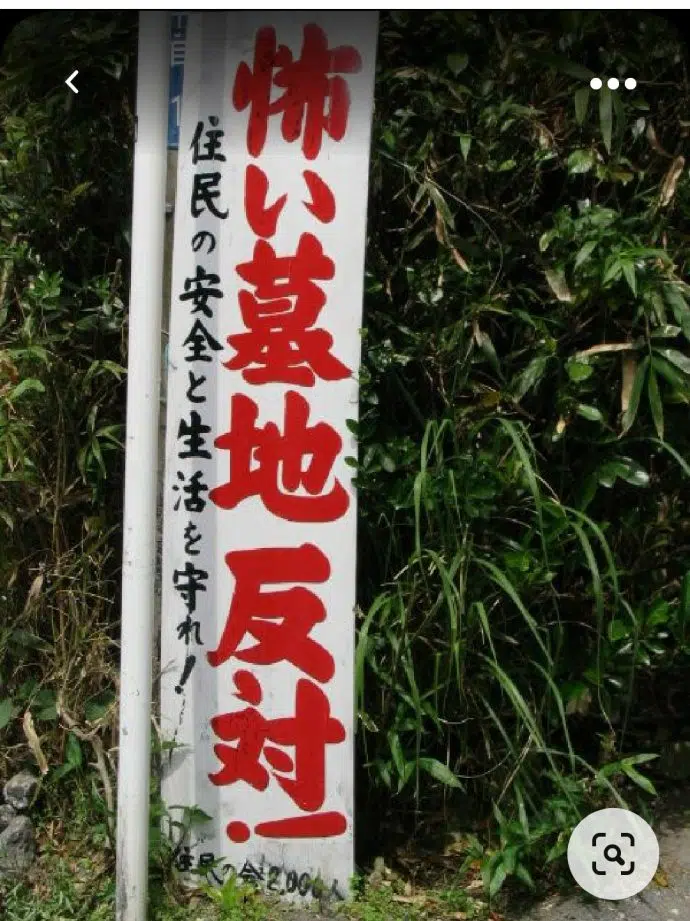 怖い墓地反対!
住民の安全と生活を守れ!
住民の会2,000人